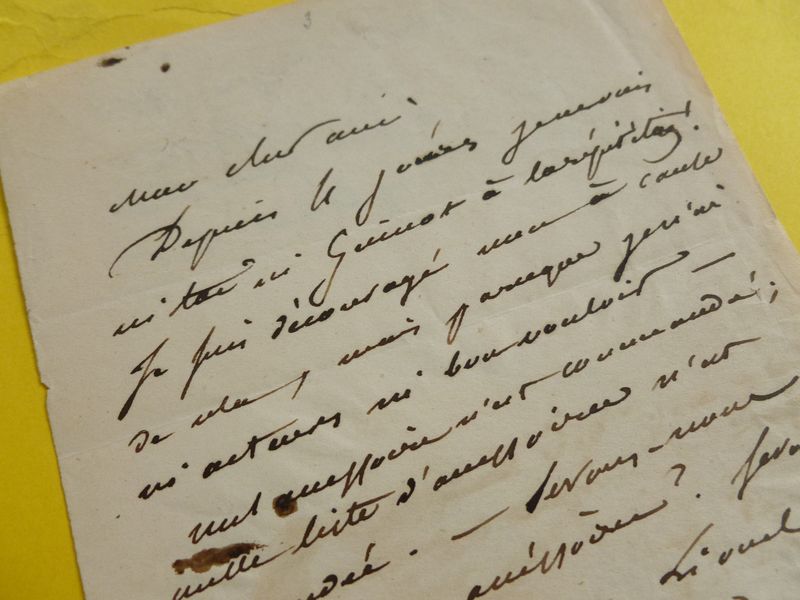 3
Mon cher ami
Depuis 4 jours je ne vois
ni toi ni Guinot à la répétition.
Je suis découragé non à cause
de cela, mais parceque je n'ai
ni acteurs ni bon vouloir —
nul accessoire n'est commandé;
nulle liste d'accessoires n'est
— Serons-nous
accessoires? Sera
Lionel